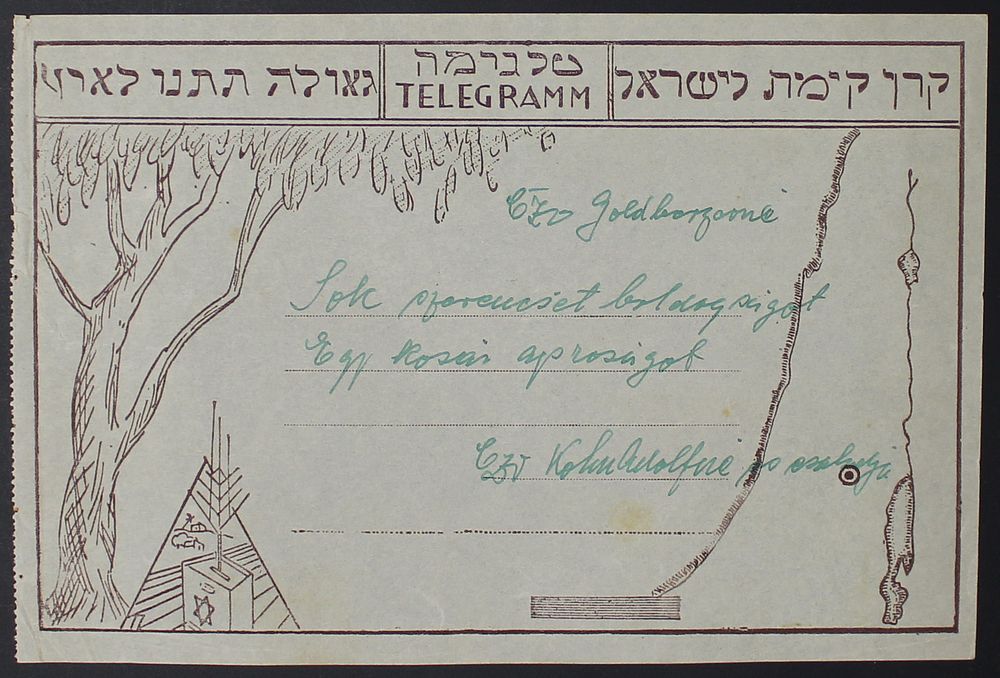 קרן קימת לישראל
טלגרמה
TELEGRAMM
גאולה תתנו לארץ
Sok szerencsét boldogságot
Egy kosár apróságot
Kohn Adolfné és családja